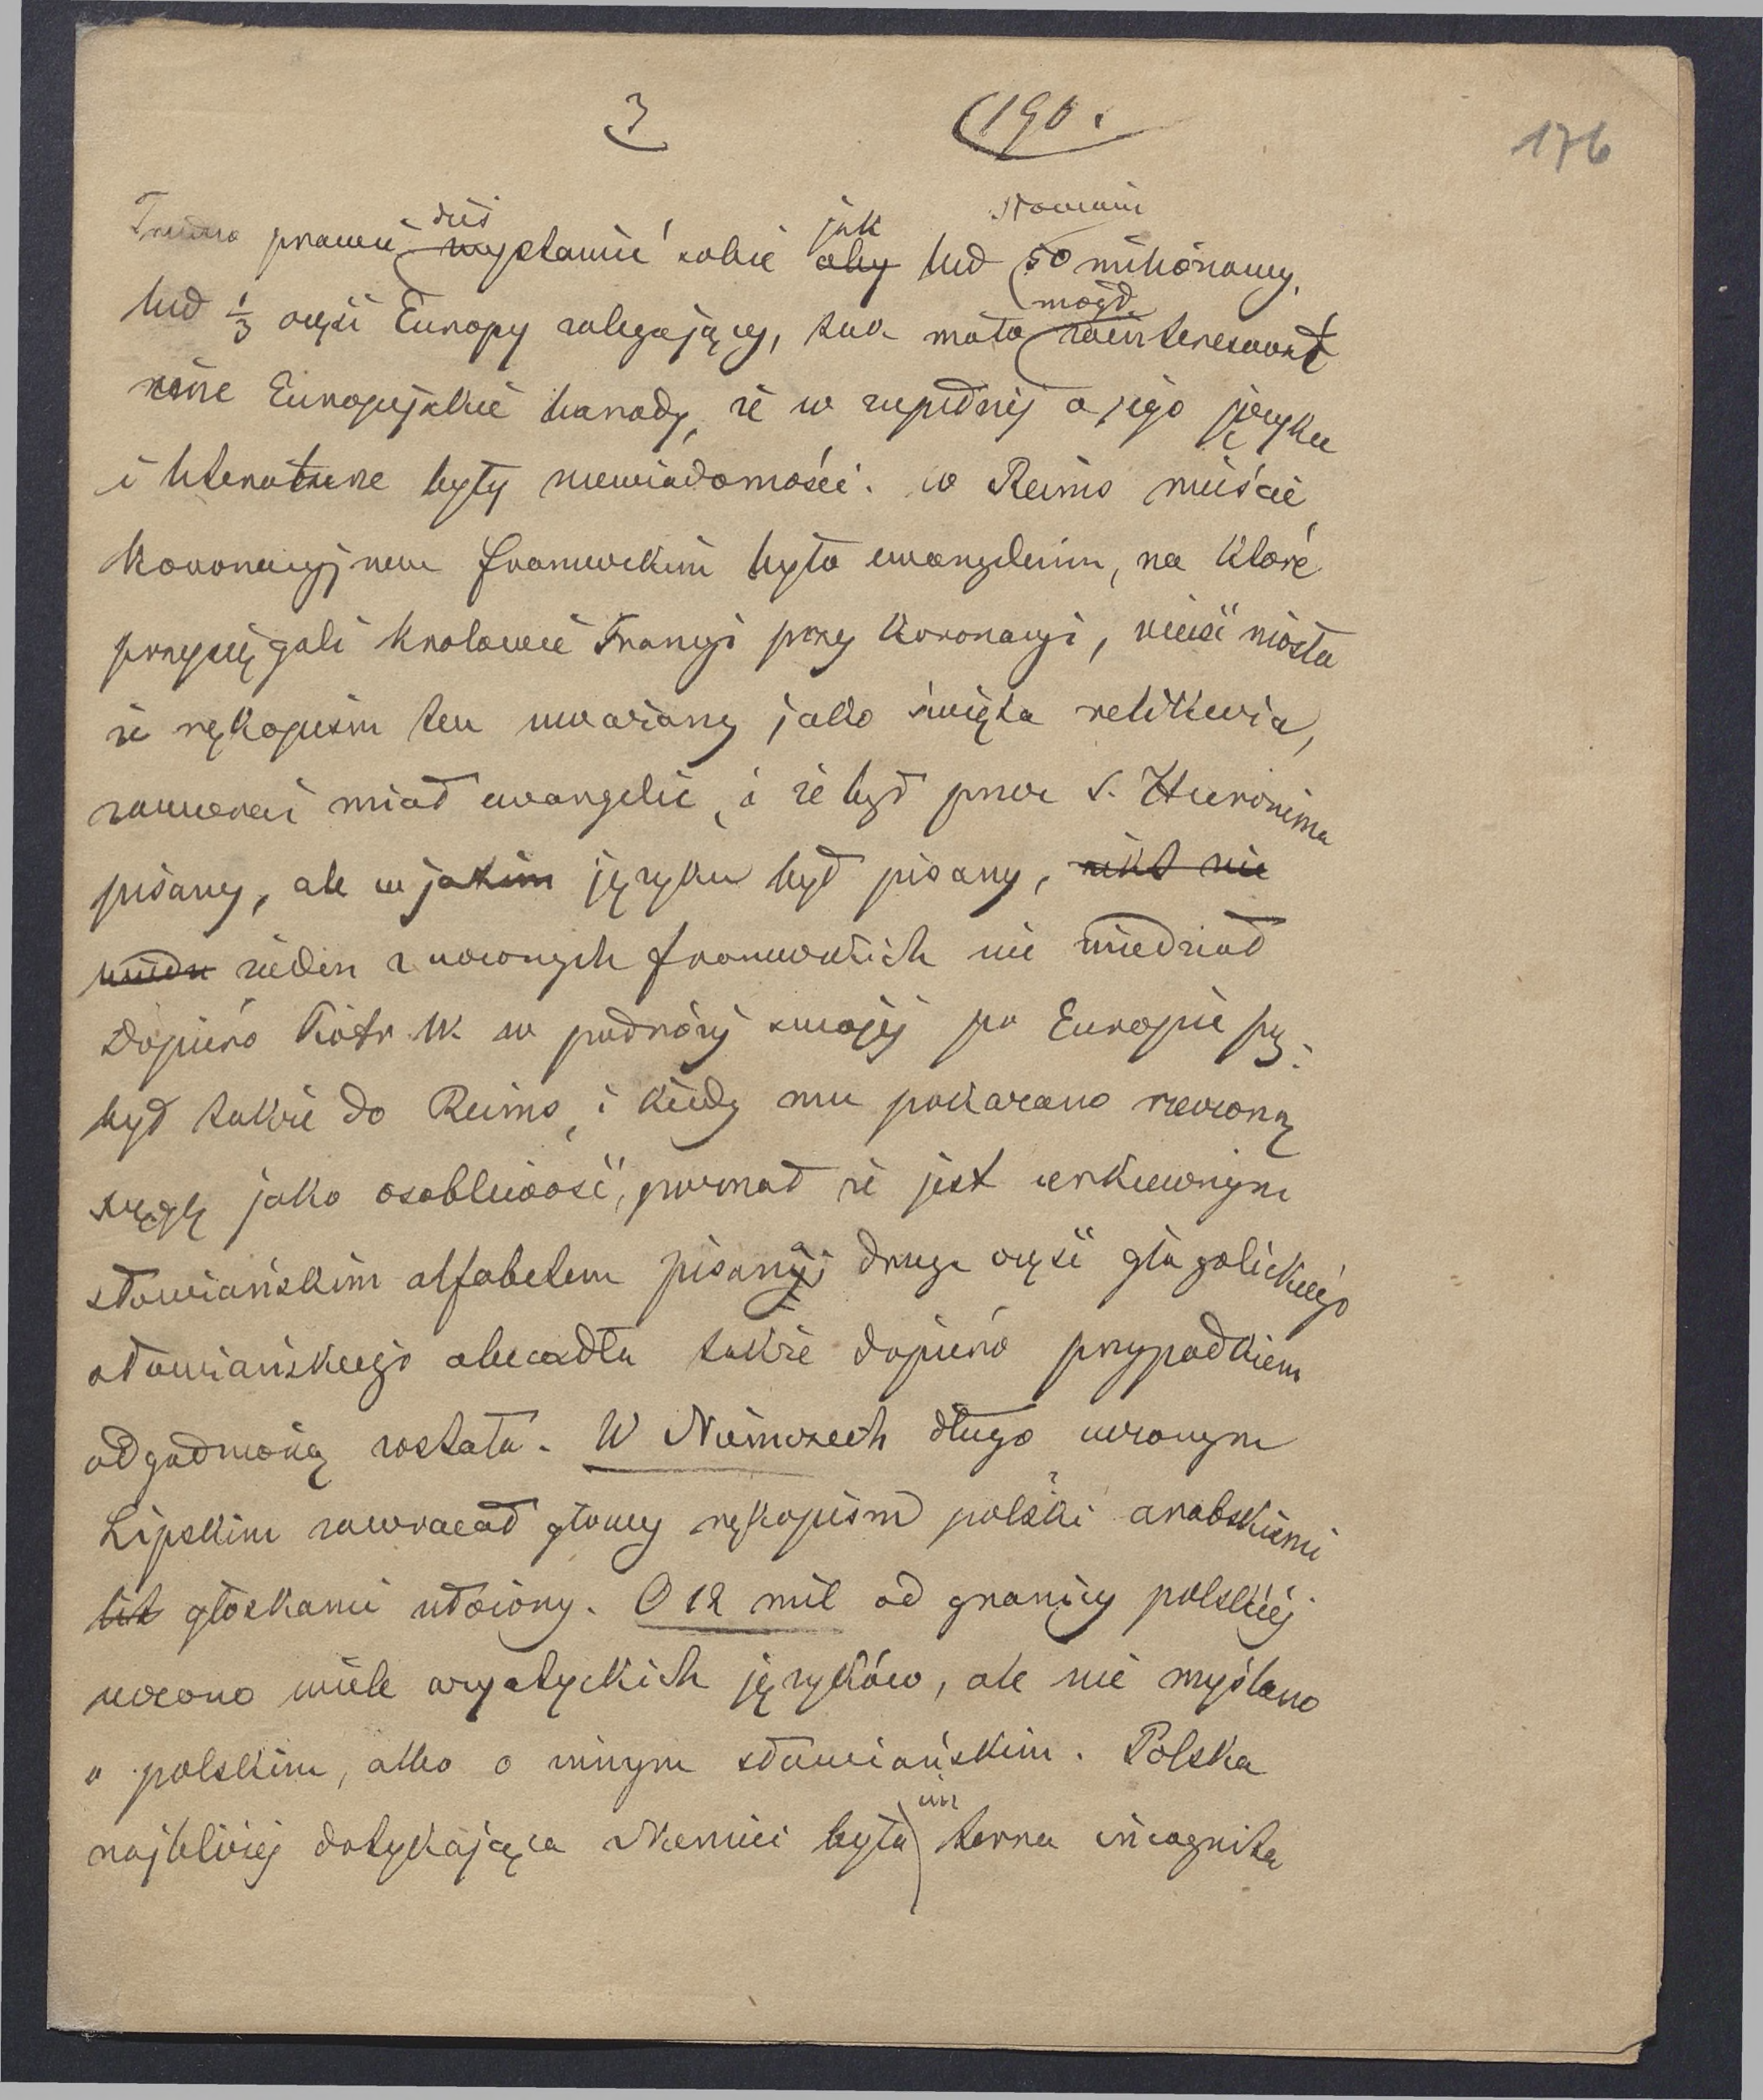 3 (190.
176
Trudno prawie dziś wystawić sobie jak aby lud Słowiański 50 milionowy,
lud 1/3 części Europy zalegający, tak mało mógł zainteresować
różne Europejskie narody, że w zupełnéj o jego języku
i literaturze były niewiadomości. w Reims mieście
koronacyjnem francuckim była ewangelium, na które
przysięgali krolowie Francyi przy koronacyi, wieść niosła
że rękopism ten uważany jako święta relikwia,
zawierać miał ewangelie, i że był przez S. Hieronima
pisany, ale w jakim języku był pisany, nikt nie
wiedz żeden z uczonych francuzkich nie wiedział
Dopiéro Piotr W w podróży swojéj po Europie przy-
był także do Reims, i kiedy mu pokazano rzeczoną
xięgę jako osobliwość, poznał że jest cerkiewnym
słowiańskim alfabetem pisany; druga część glagolickiego
słowiańskiego abecadła także dopiéro przypadkiem
odgadnioną została. W Niemczech długo uczonym
Lipskim zawracał głowy rękopism polski arabskiemi
lit głoskami złożony. O 12 mil od granicy polskiéj
uczono wiele azyatyckich języków, ale nie myślano
o polskim, albo o innym słowiańskim. Polska
najbliżéj dotykająca Niemiec była im terra incognita